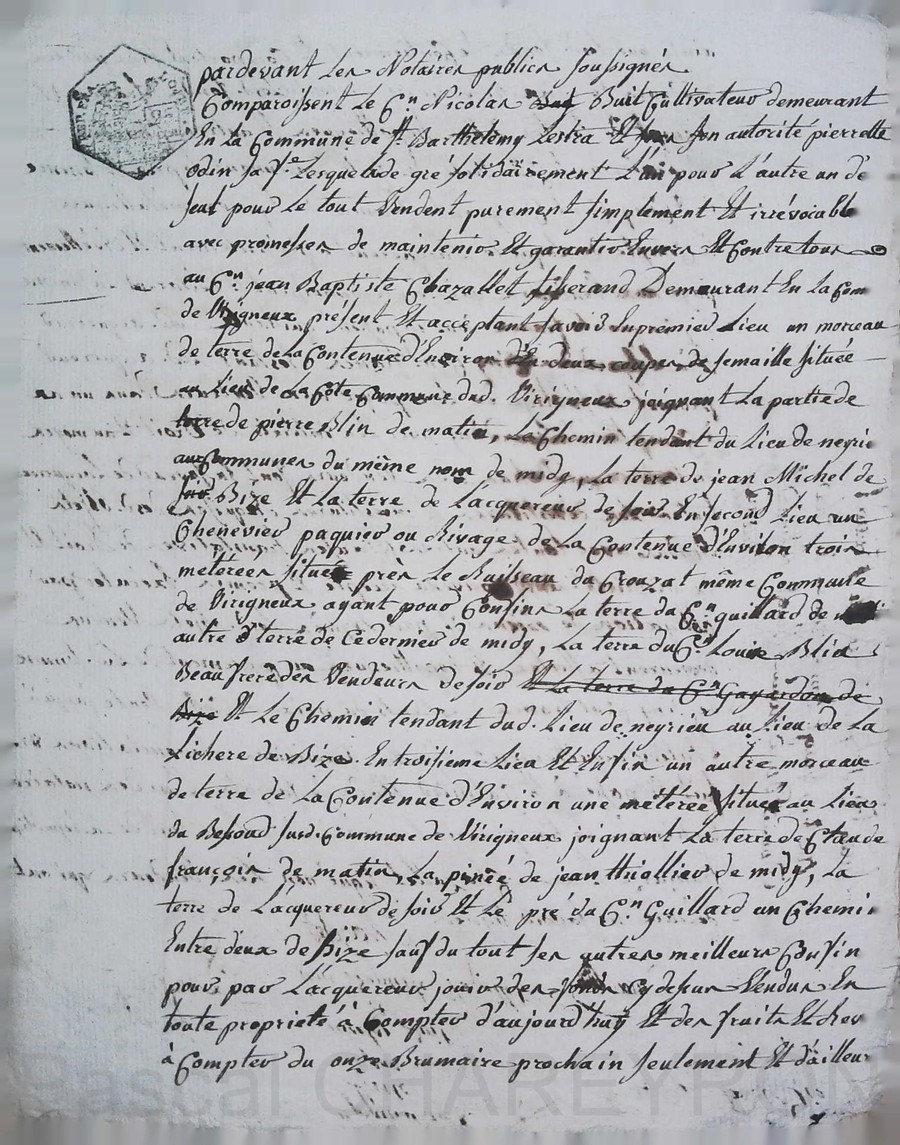 pardevant Les Notaires publics soussignés
Comparoissent Le C.n Nicolas Buit Cultivateur demeurant
En La Commune de S.t Barthélemy Lestra Et son autorité pierrette
odin sa f.e Lesquels de gré solidairement L'un pour L'autre un d'é
seul pour Le tout Vendent purement simplement Et irrévocable
avec promesses de maintenir Et garantir Envers Et Contre tous
au C.n jean Baptiste Chazallet tisserand Demeurant En La Com
de Virigneux présent Et acceptant savoir En premier Lieu un morceau
de terre de La Contenue d'Environ deux coupes de semaille située
au Lieu de La Côte Commune dud. Virigneux joignant La partie de
terre de pierre Blin de matin, Le Chemin tendant du Lieu de neyrie
aux Communes du même nom de midy, La terre de jean Michel de
Bize Et La terre de L'acquereur de soir En second Lieu un
Chenevier paquier ou Rivage de La Contenue d'Environ trois
meterées située près Le Ruisseau du Crouzat même Commune
de Virigneux ayant pour Confins La terre du C.n guillard de
autre terre de Cedernier de midy, La terre du C.n Louis Blin
Beaufrere des Vendeurs de soir Et La terre du C.n Gayardon de
Bize Et Le Chemin tendant dud. Lieu de neyrieu au Lieu de La
Lichere de Bize. En troisieme Lieu Et Enfin un autre morceau
de terre de La Contenue d'Environ une méterée située au Lieu
du Besoud susd. Commune de Virigneux joignant La terre de Claude
françois de matin, La pinée de jean thiollier de midy, La
terre de Lacquereur de soir Et Le pré du C.n Guillard un Chemi
Entre deux de Bize sauf du tout ses autres meilleurs Confin
pour par L'acquereur jouir des fonds Cy dessus Vendus En
toute propriété à Compter d'aujourd'huy Et des fruits Et Rev
à Compter du onze Brumaire prochain seulement Et d'ailleur